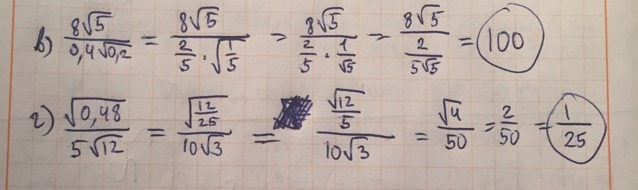 в) 8√5 / 0,4√0,2 = 8√5 / (2/5 · √(1/5)) = 8√5 / (2/5 · 1/√5) = 8√5 / (2 / 5√5) = 100
г) √0,48 / 5√12 = √(12/25) / 10√3 = (√12 / 5) / 10√3 = √4 / 50 = 2/50 = 1/25